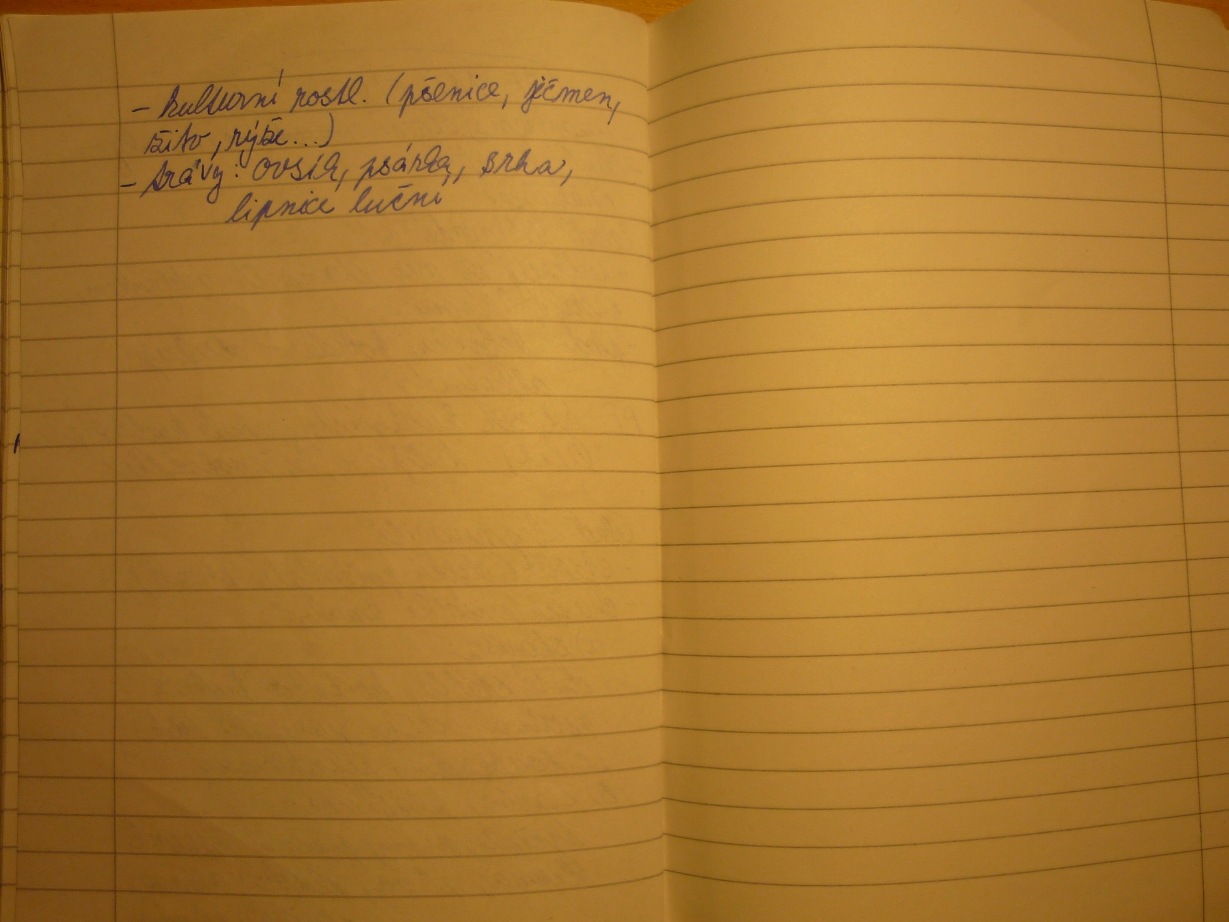 - kulturní rostl. (pšenice, ječmen,
žito, rýže...)
- trávy: ovsík, psárka, srha,
lipnice luční